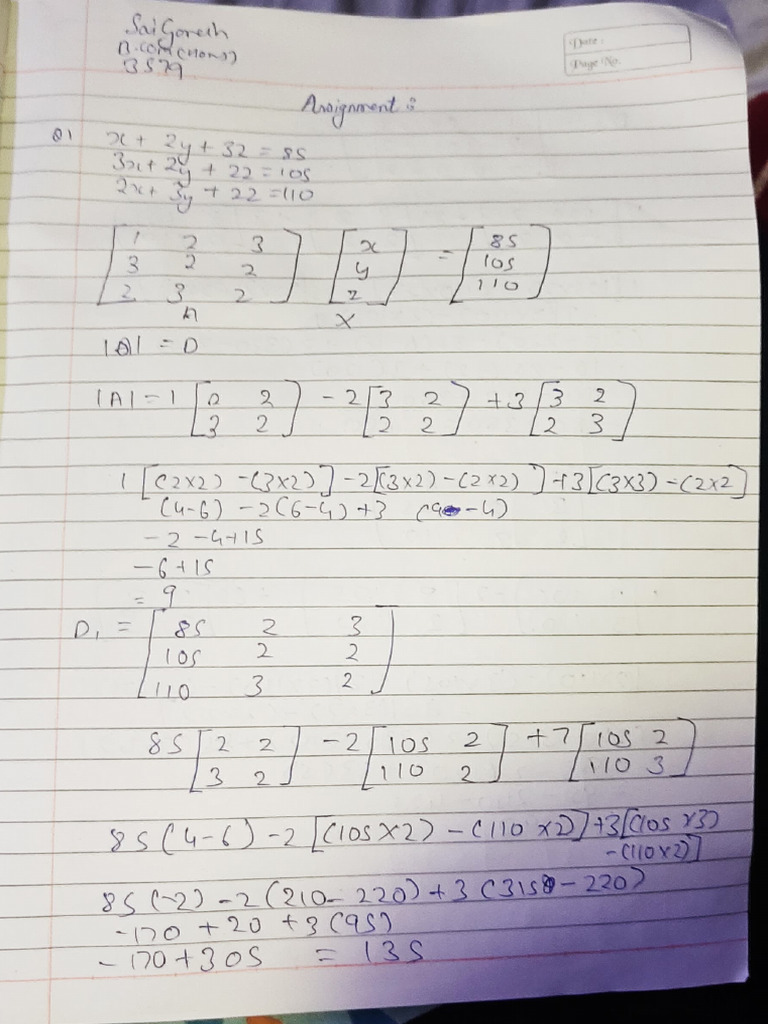 Sai Ganesh
B.COM (Hons)
3579
Date :
Page No.
Assignment :
Q1 x + 2y + 3z = 85
3x + 2y + 2z = 105
2x + 3y + 2z = 110
[1 2 3] [x] = [85]
[3 2 2] [y] [105]
[2 3 2] [z] [110]
A X
|A| = D
|A| - 1 [2 2] - 2 [3 2] + 3 [3 2]
[3 2] [2 2] [2 3]
1 [(2x2) - (3x2)] - 2[(3x2) - (2x2)] + 3[(3x3) - (2x2]
(4-6) - 2(6-4) + 3 (9 - 4)
-2 -4+15
-6+15
= 9
D₁ = [85 2 3]
[105 2 2]
[110 3 2]
85 [2 2] - 2 [105 2] + 7 [105 2]
[3 2] [110 2] [110 3]
85 (4-6) - 2 [(105x2) - (110x2)] + 3[(105x3)
- (110x2)]
85 (-2) - 2 (210 - 220) + 3 (315 - 220)
-170 + 20 + 3 (95)
- 170 + 305 = 135